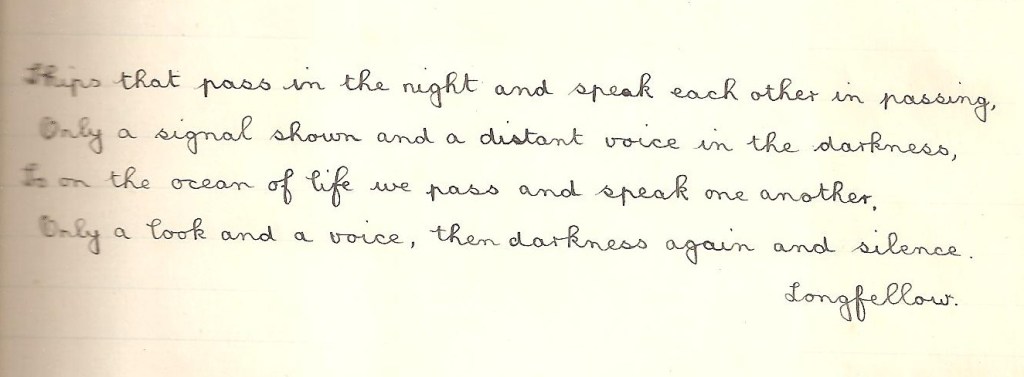 Ships that pass in the night and speak each other in passing,
Only a signal shown and a distant voice in the darkness,
So on the ocean of life we pass and speak one another,
Only a look and a voice, then darkness again and silence.
Longfellow.